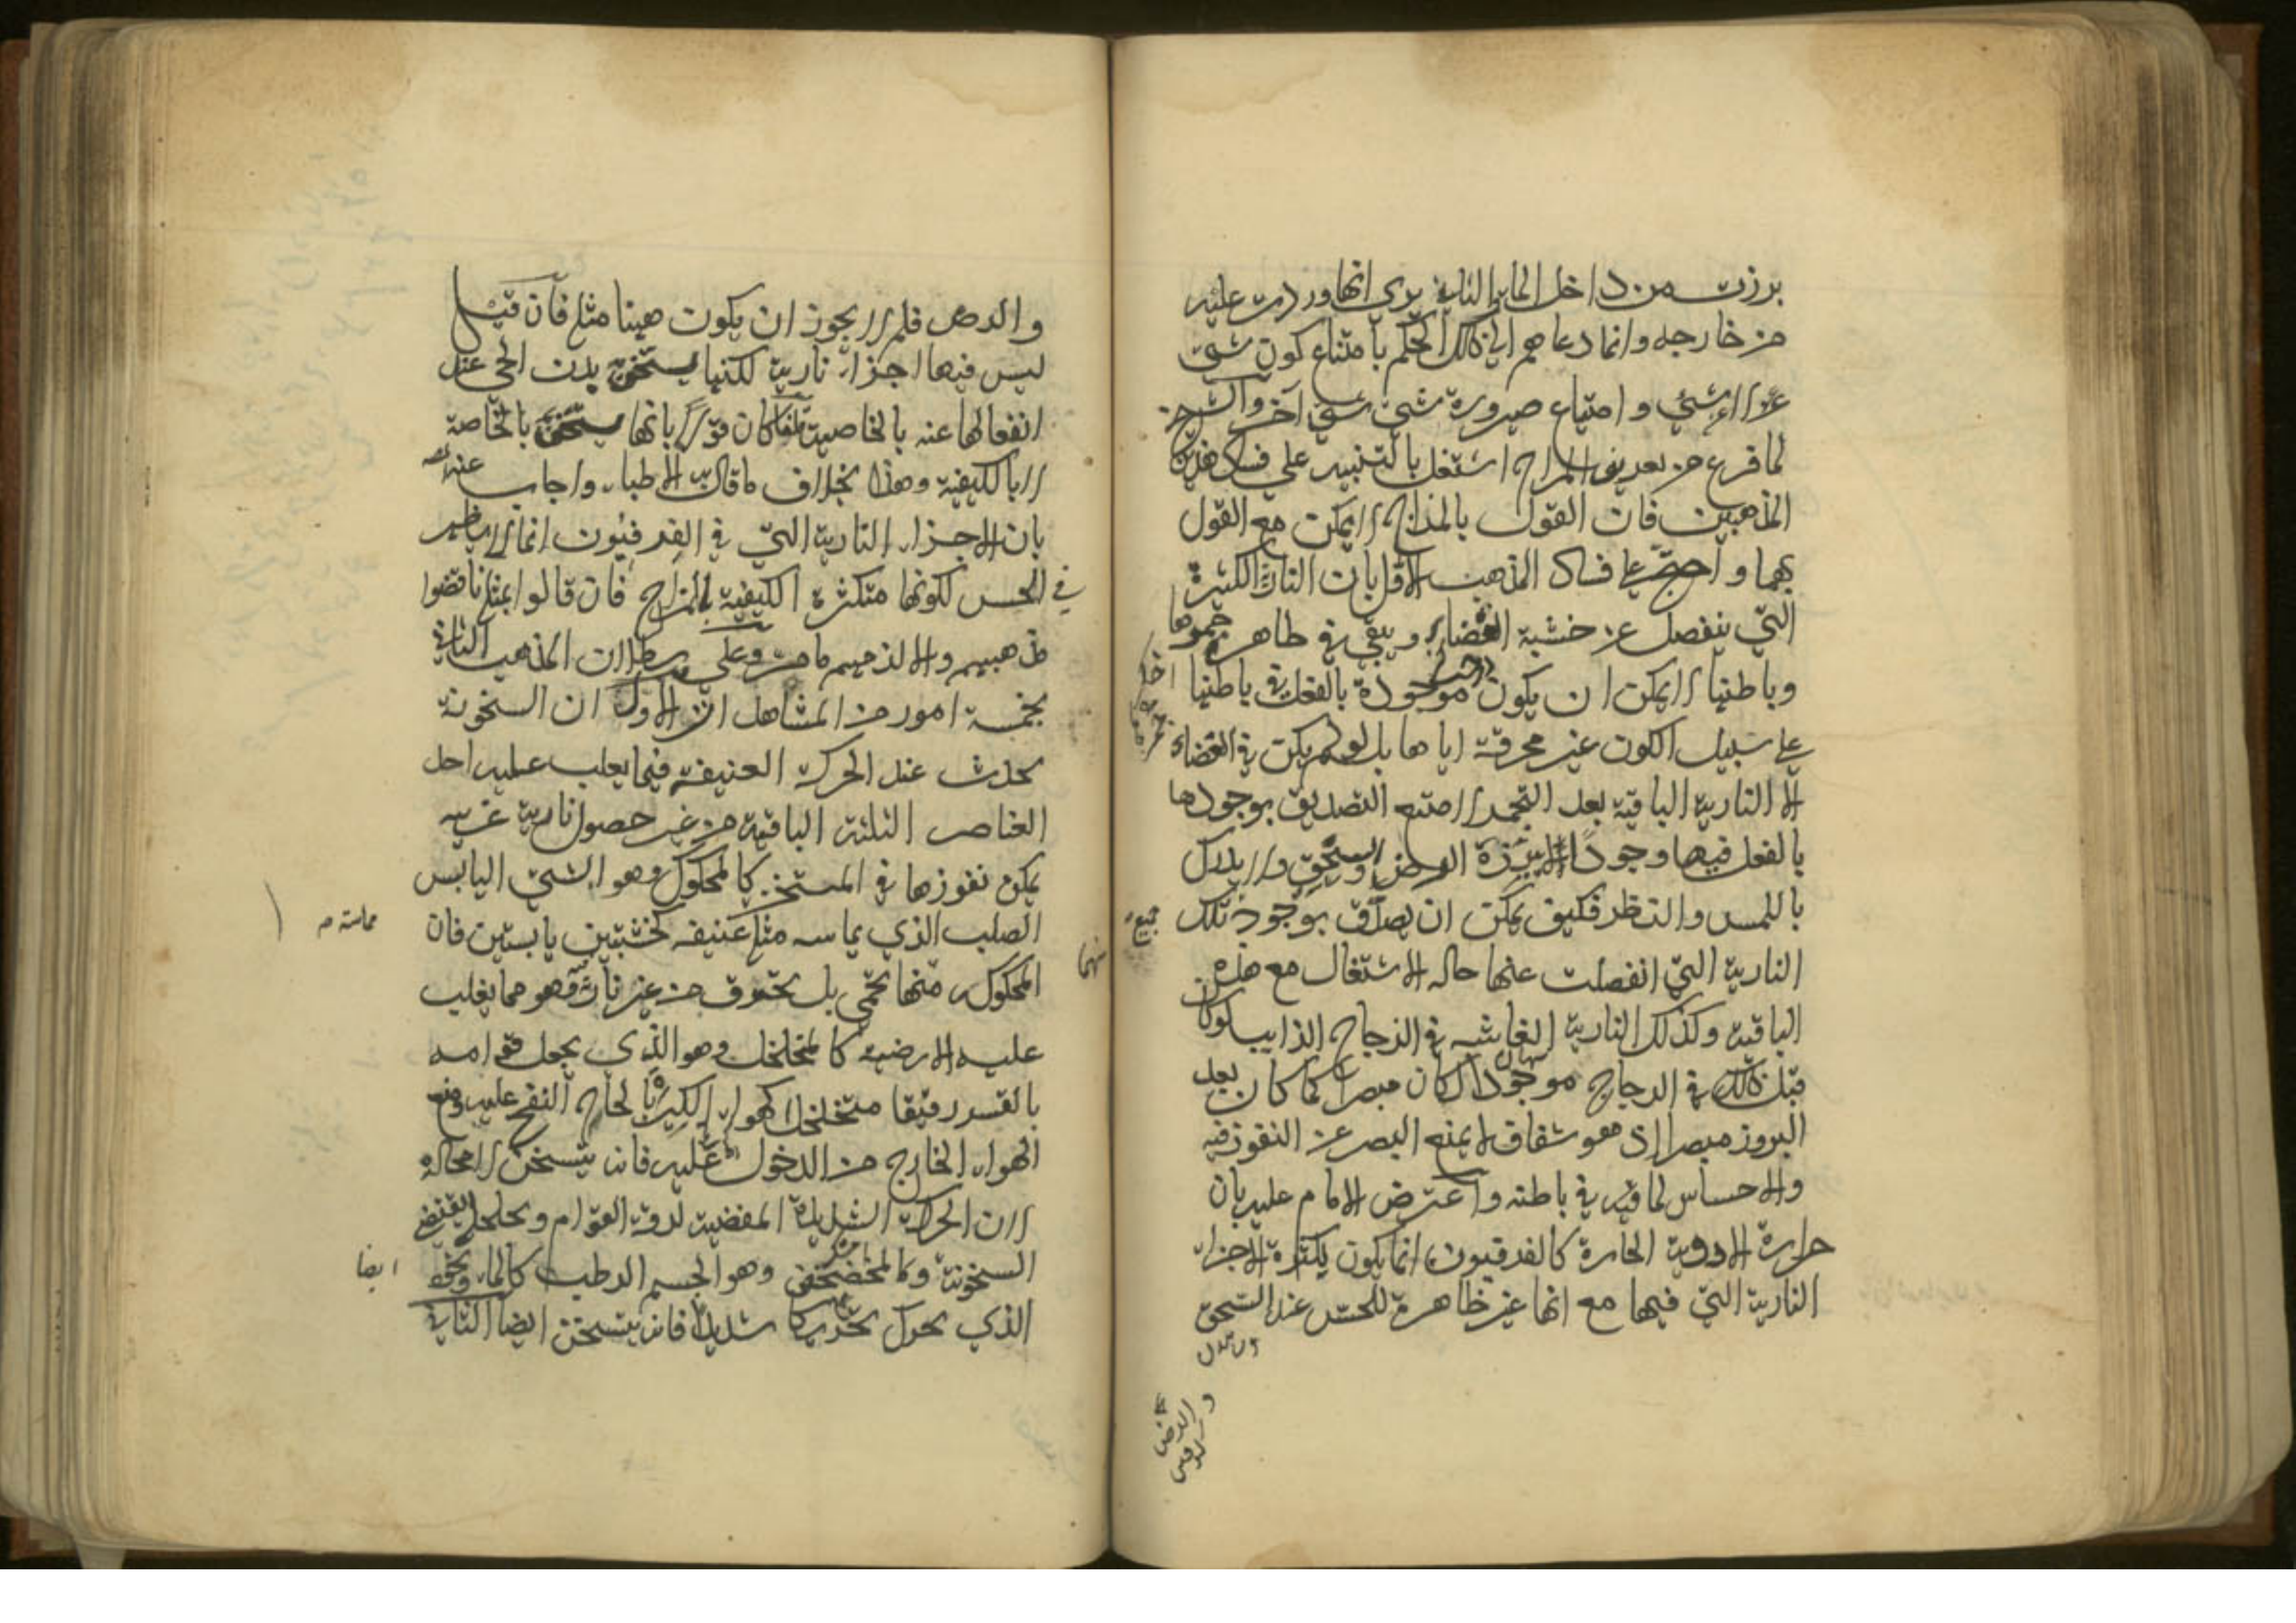 برزت من داخل الماء والثانية يرى انها وردت عليه
من خارجه وانما دعاهم الى ذلك الحكم بامتناع كون شئ
عن لا شئ و امتناع صيرورة شئ شئ آخر والشيخ
لما فرغ من تعريف المزاج اشتغل بالتنبيه على فساد هذين
المذهبين فان القول بالمزاج لا يمكن مع القول
بهما و احتج على فساد المذهب الاول بان النارية الكثيرة
التي ينفصل عن خشبة الغضا و يبقى في ظاهر جمرها
وباطنها لا يمكن ان يكون موجودة بالفعل في باطنها
على سبيل الكون غير محرقة اياها بل لو لم يكن في الغضاء
الا النارية الباقية بعد التجمر لامتنع التصديق بوجودها
بالفعل فيها وجودا الرض والسحق ولا يدرك
باللمس والنظر فكيف يمكن ان يصدق بوجود تلك
جميع
النارية التي انفصلت عنها حاله الاشتعال مع هذه
الباقية وكذلك النارية الفاشيه في الزجاج الذايب لو كان
قبل ذلك في الزجاج موجودا لكان مبصرا كما كان بعد
البروز مبصرا اذ هو شفاف لا يمنع البصر عن النفوذ فيه
والاحساس لما فيه في باطنه واعترض الامام عليه بان
حرارة الادوية الحارة كالفرفيون انما يكون بكثرة الاجزاء
النارية التي فيها مع انها غير ظاهرة للحس عند السحق
والرض
والرض فلم لا يجوز ان يكون هيهنا مثله فان قيل
ليس فيها اجزاء نارية لكنها يسخن بدن الحي عند
انفعالها عنه بالخاصية كان قولا بانها يسخن بالخاصة
لا بالكيفية وهذا بخلاف ما قالت الاطباء واجاب عنه
بان الاجزاء النارية التي في الفرفيون انما لا يظهر
في الحس لكونها متكثرة الكيفية بالمزاج فان قالوا بمثله ناقضوا
مذهبهم والا لزمهم ما مر وعلى بطلان المذهب الثاني
بخمسة امور من المشاهدات الاول ان السخونة
يحدث عند الحركة العنيفة فيما يغلب عليه احد
العناصر الثلثة الباقية من غير حصول نارية غريبه
يمكن نفوذها في المستخن كالمحكول وهو الشئ اليابس
الصلب الذي يماسه مثله عنيفه كخشبتين يابستين فان
مماسته
المحكوك منهما يحمى بل يحترق من غير نار وهو مما يغلب
عليه الارضية كالمتخلخل وهو الذي يجعل قوامه
بالقسر رقيقا متخلخلا كهواء الكير بالحاح النفخ عليه ومنع
الهواء الخارج من الدخول عليه فانه يتسخن لا محالة
لان الحركة الشديدة المفضية لرقة القوام و تخلخله يقتضي
السخونة وكالمخضخض وهو الجسم الرطب كالماء ونحوه
ايضا
الذي يحرك تحريكا شديدا فانه يتسخن ايضا الثاني